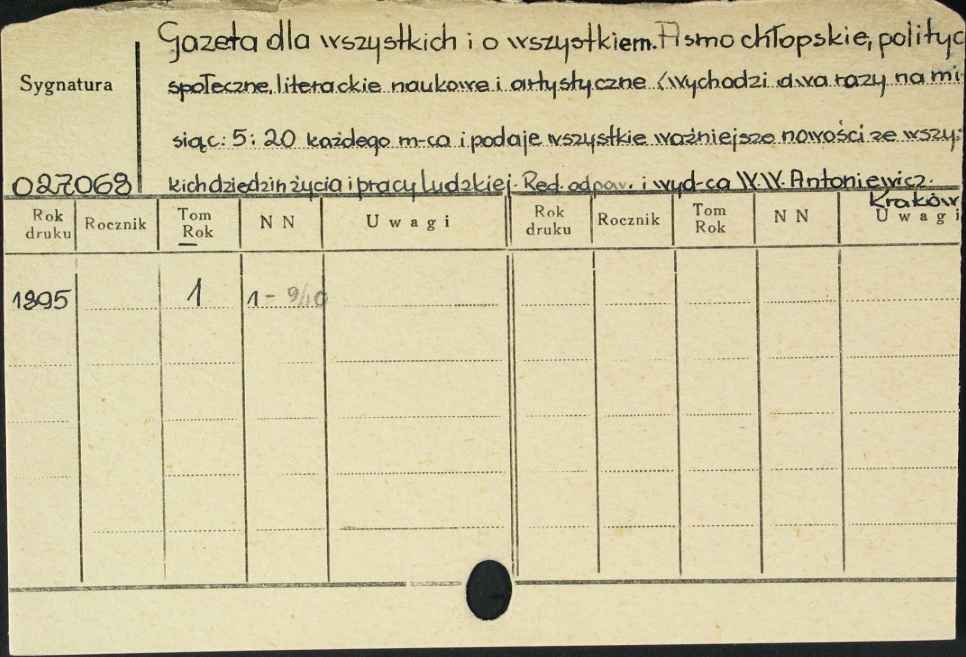 Gazeta dla wszystkich i o wszystkiem. Pismo chłopskie, polityc
Sygnatura
społeczne, literackie naukowe i artystyczne (wychodzi dwa razy na mi-
siąc: 5 i 20 każdego m-ca i podaje wszystkie ważniejsze nowości ze wszy-
027068
kich dziedzin życia i pracy ludzkiej. Red. odpow. i wyd-ca W.W. Antoniewicz.
Kraków
Rok druku Rocznik Tom Rok N N Uwagi Rok druku Rocznik Tom Rok N N Uwagi
1895 1 1 - 9/10